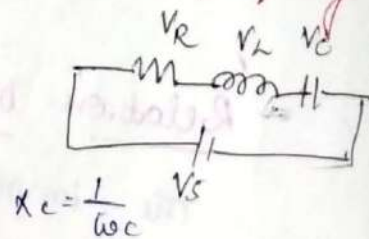 V_R V_L V_C
V_S
X_c = 1/ωc